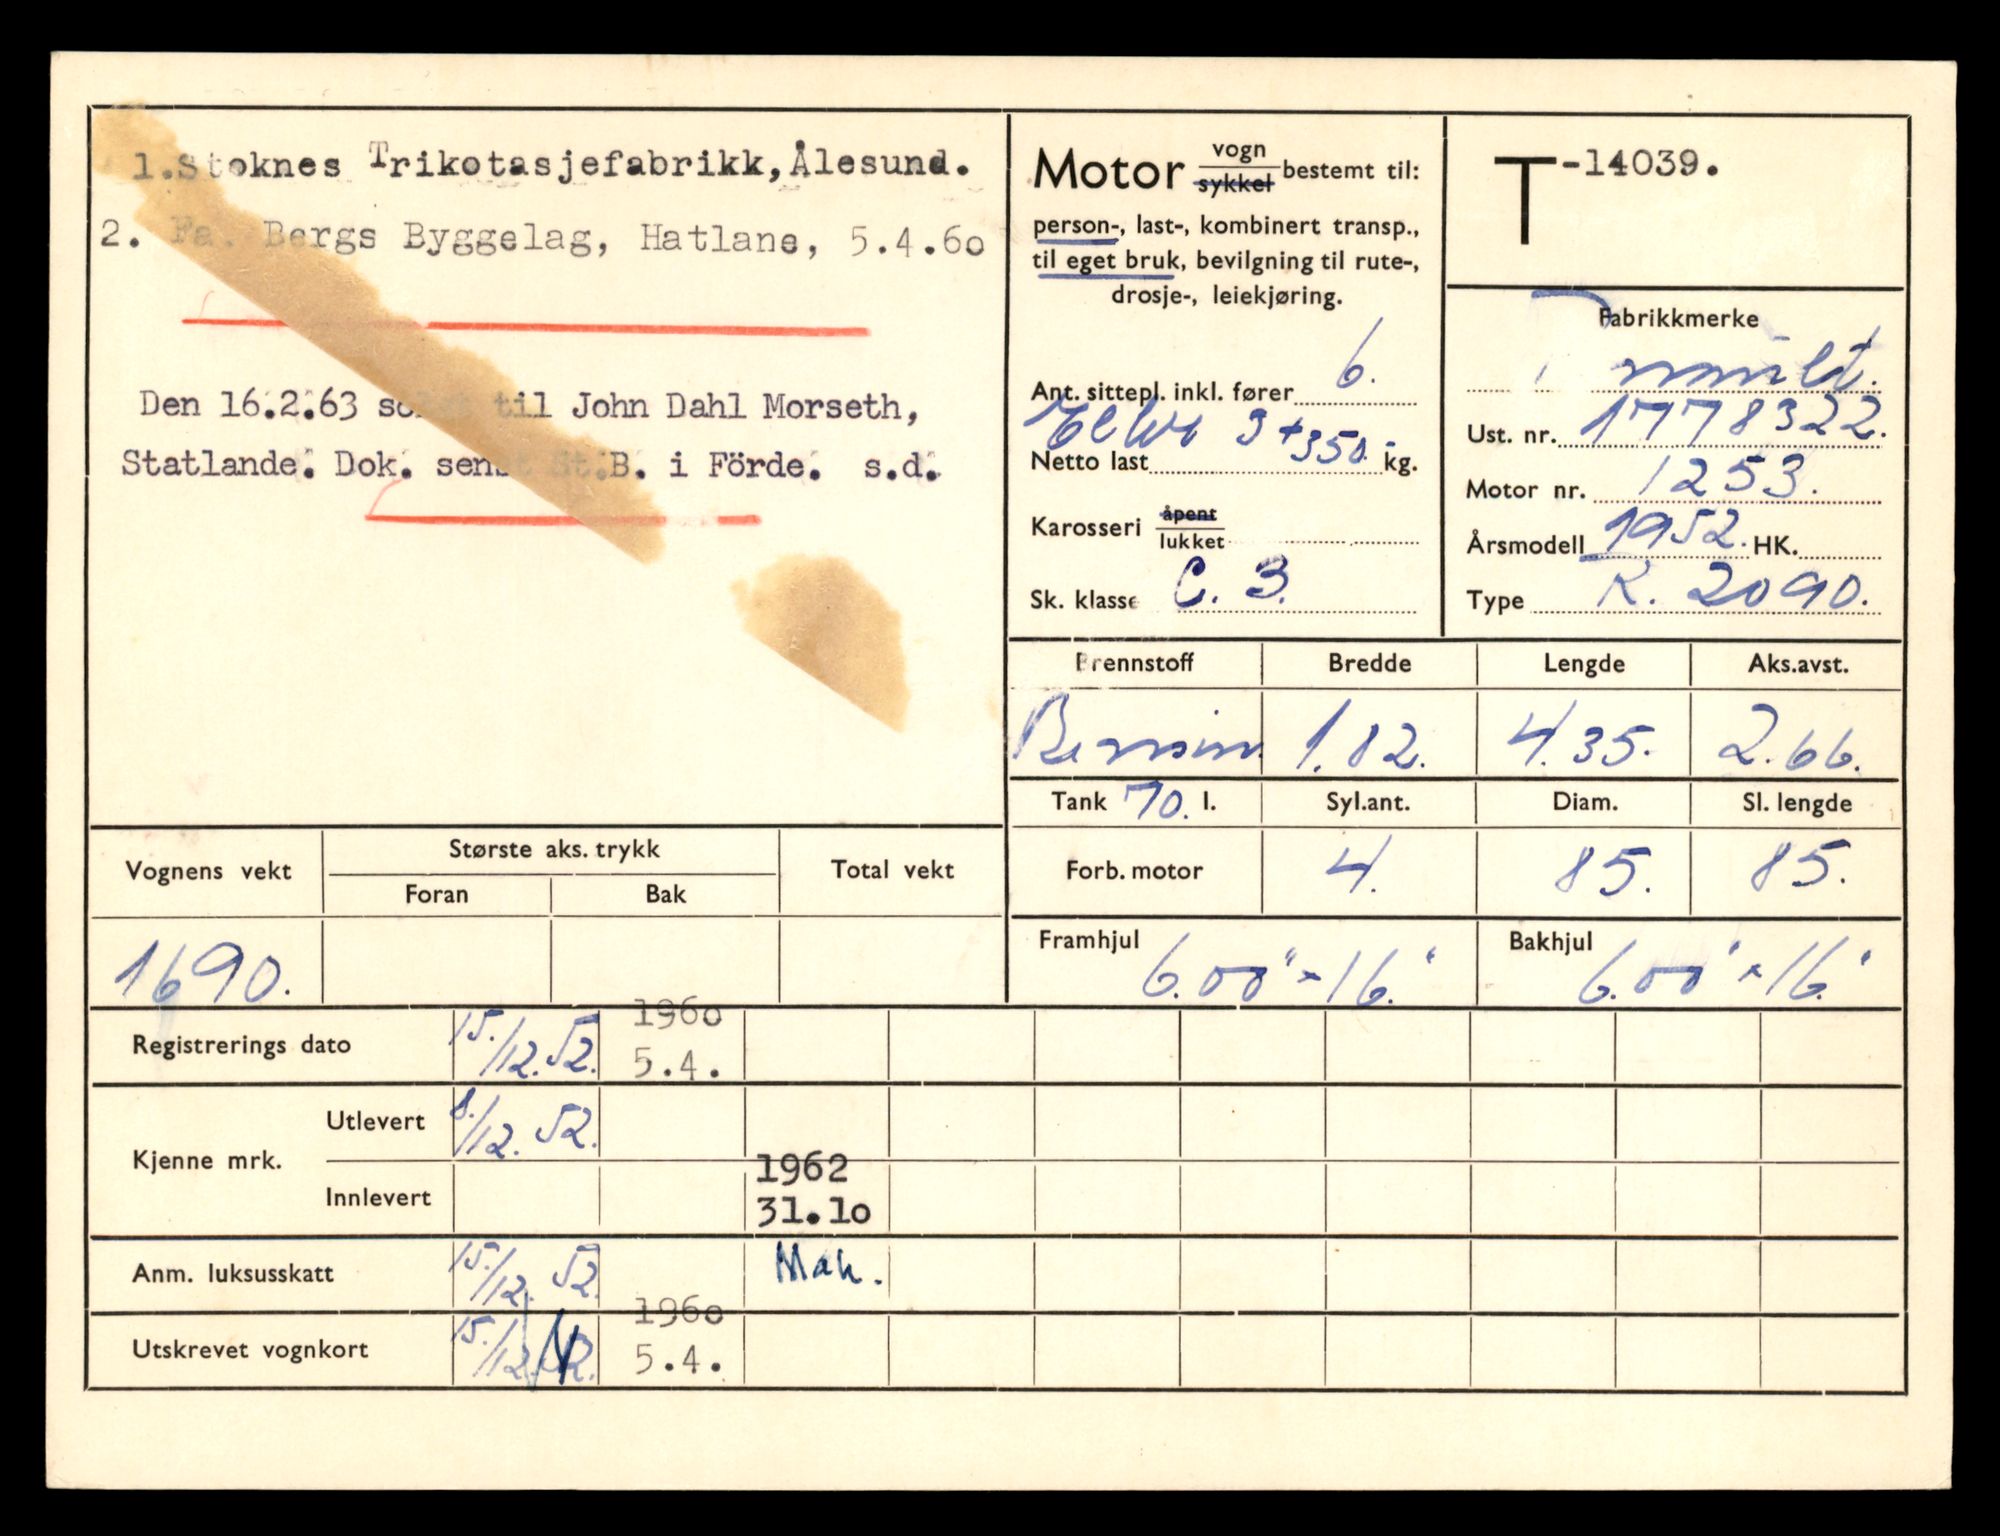 1.Stoknes Trikotasjefabrikk,Ålesund.
2. Fa. Bergs Byggelag, Hatlane, 5.4.6o
Den 16.2.63 solgt til John Dahl Morseth,
Statlande. Dok. senst St.B. i Förde. s.d.
Motor vogn sykkel bestemt til:
person-, last-, kombinert transp.,
til eget bruk, bevilgning til rute-,
drosje-, leiekjøring.
Ant. sittepl. inkl. fører 6.
Eller 3+350
Netto last kg.
Karosseri åpent lukket
Sk. klasse C. 3.
T-14039.
Fabrikkmerke
Renault.
Ust. nr. 1778322.
Motor nr. 1253.
Årsmodell 1952. HK.
Type R. 2090.
Brennstoff Bredde Lengde Aks.avst.
Bensin. 1.82. 4.35. 2.66.
Tank 70. l. Syl.ant. Diam. Sl. lengde
Forb. motor 4. 85. 85.
Framhjul 6.00" x 16." Bakhjul 6.00" x 16."
Vognens vekt Største aks. trykk Total vekt
Foran Bak
1690.
Registrerings dato 15./12.52. 1960 5.4.
Kjenne mrk. Utlevert 8./12. 52.
Innlevert 1962 31.1o
Anm. luksusskatt 15./12. 52. Mah.
Utskrevet vognkort 15./12. 52. 196o 5.4.